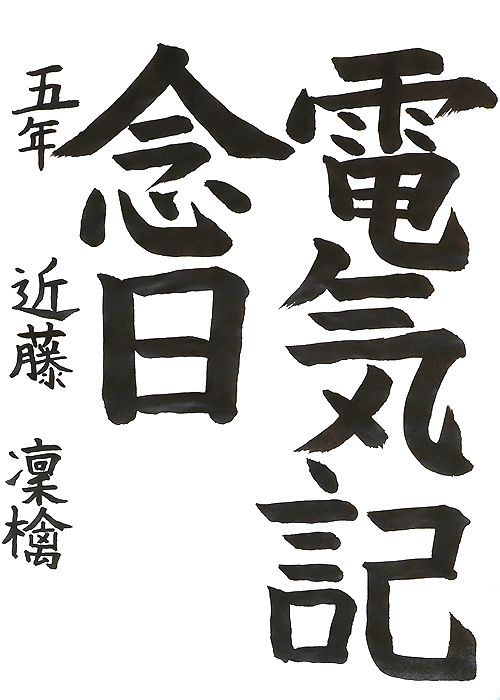 電気記
念日
五年 近藤 凜檎